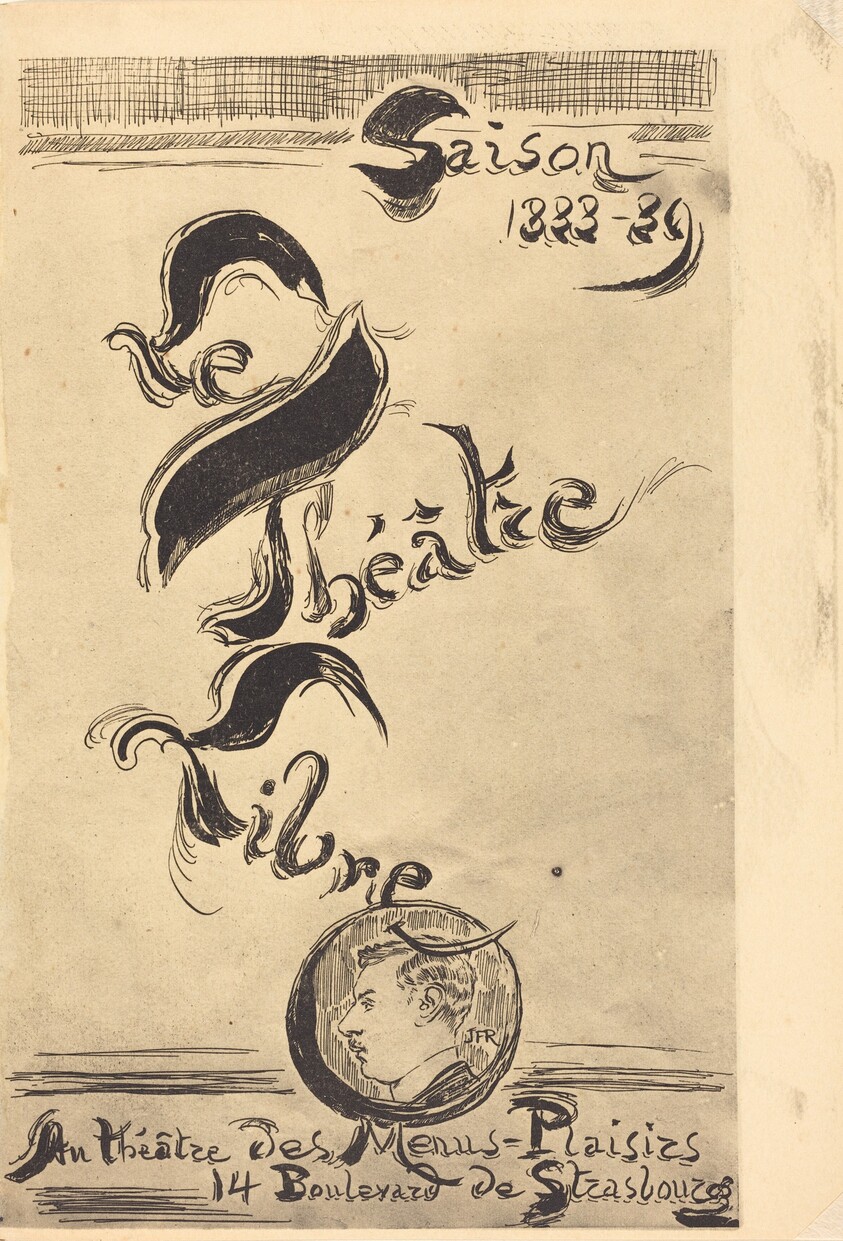 Saison
1888-89
Le
Théâtre
Libre
JFR
Au théâtre Des Menus-Plaisirs
14 Boulevard de Strasbourg